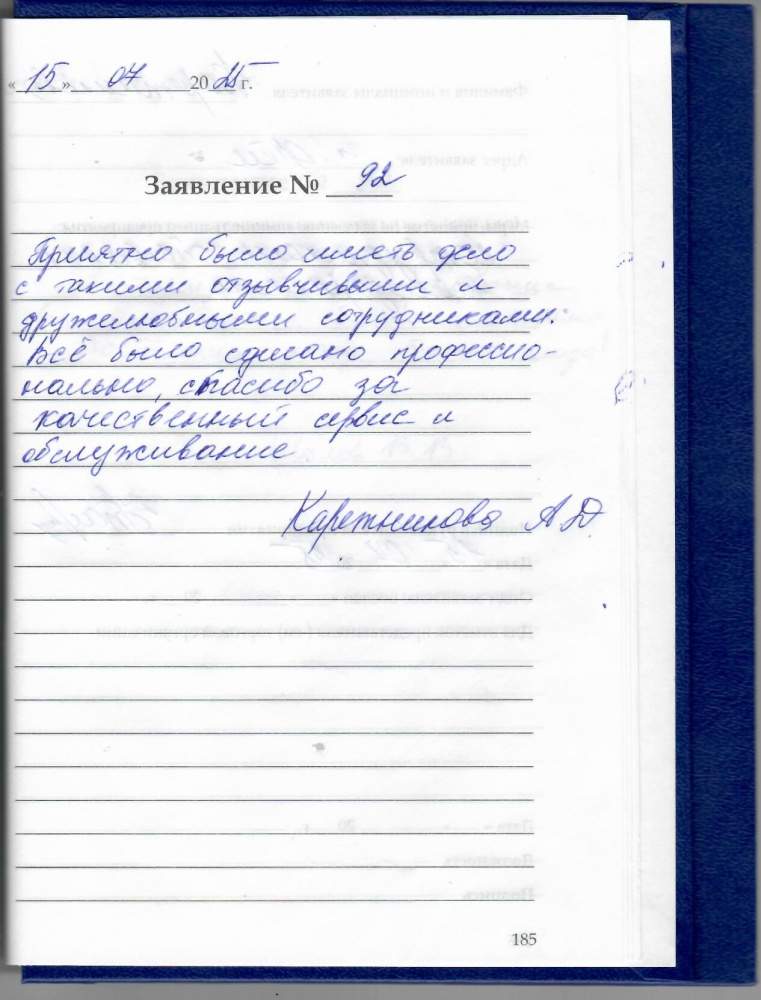 «15» 07 2025 г.
Заявление № 92
Приятно было иметь дело
с такими отзывчивыми и
дружелюбными сотрудниками.
Всё было сделано профессио-
нально, спасибо за
качественный сервис и
обслуживание
Каретникова А.Д.
185